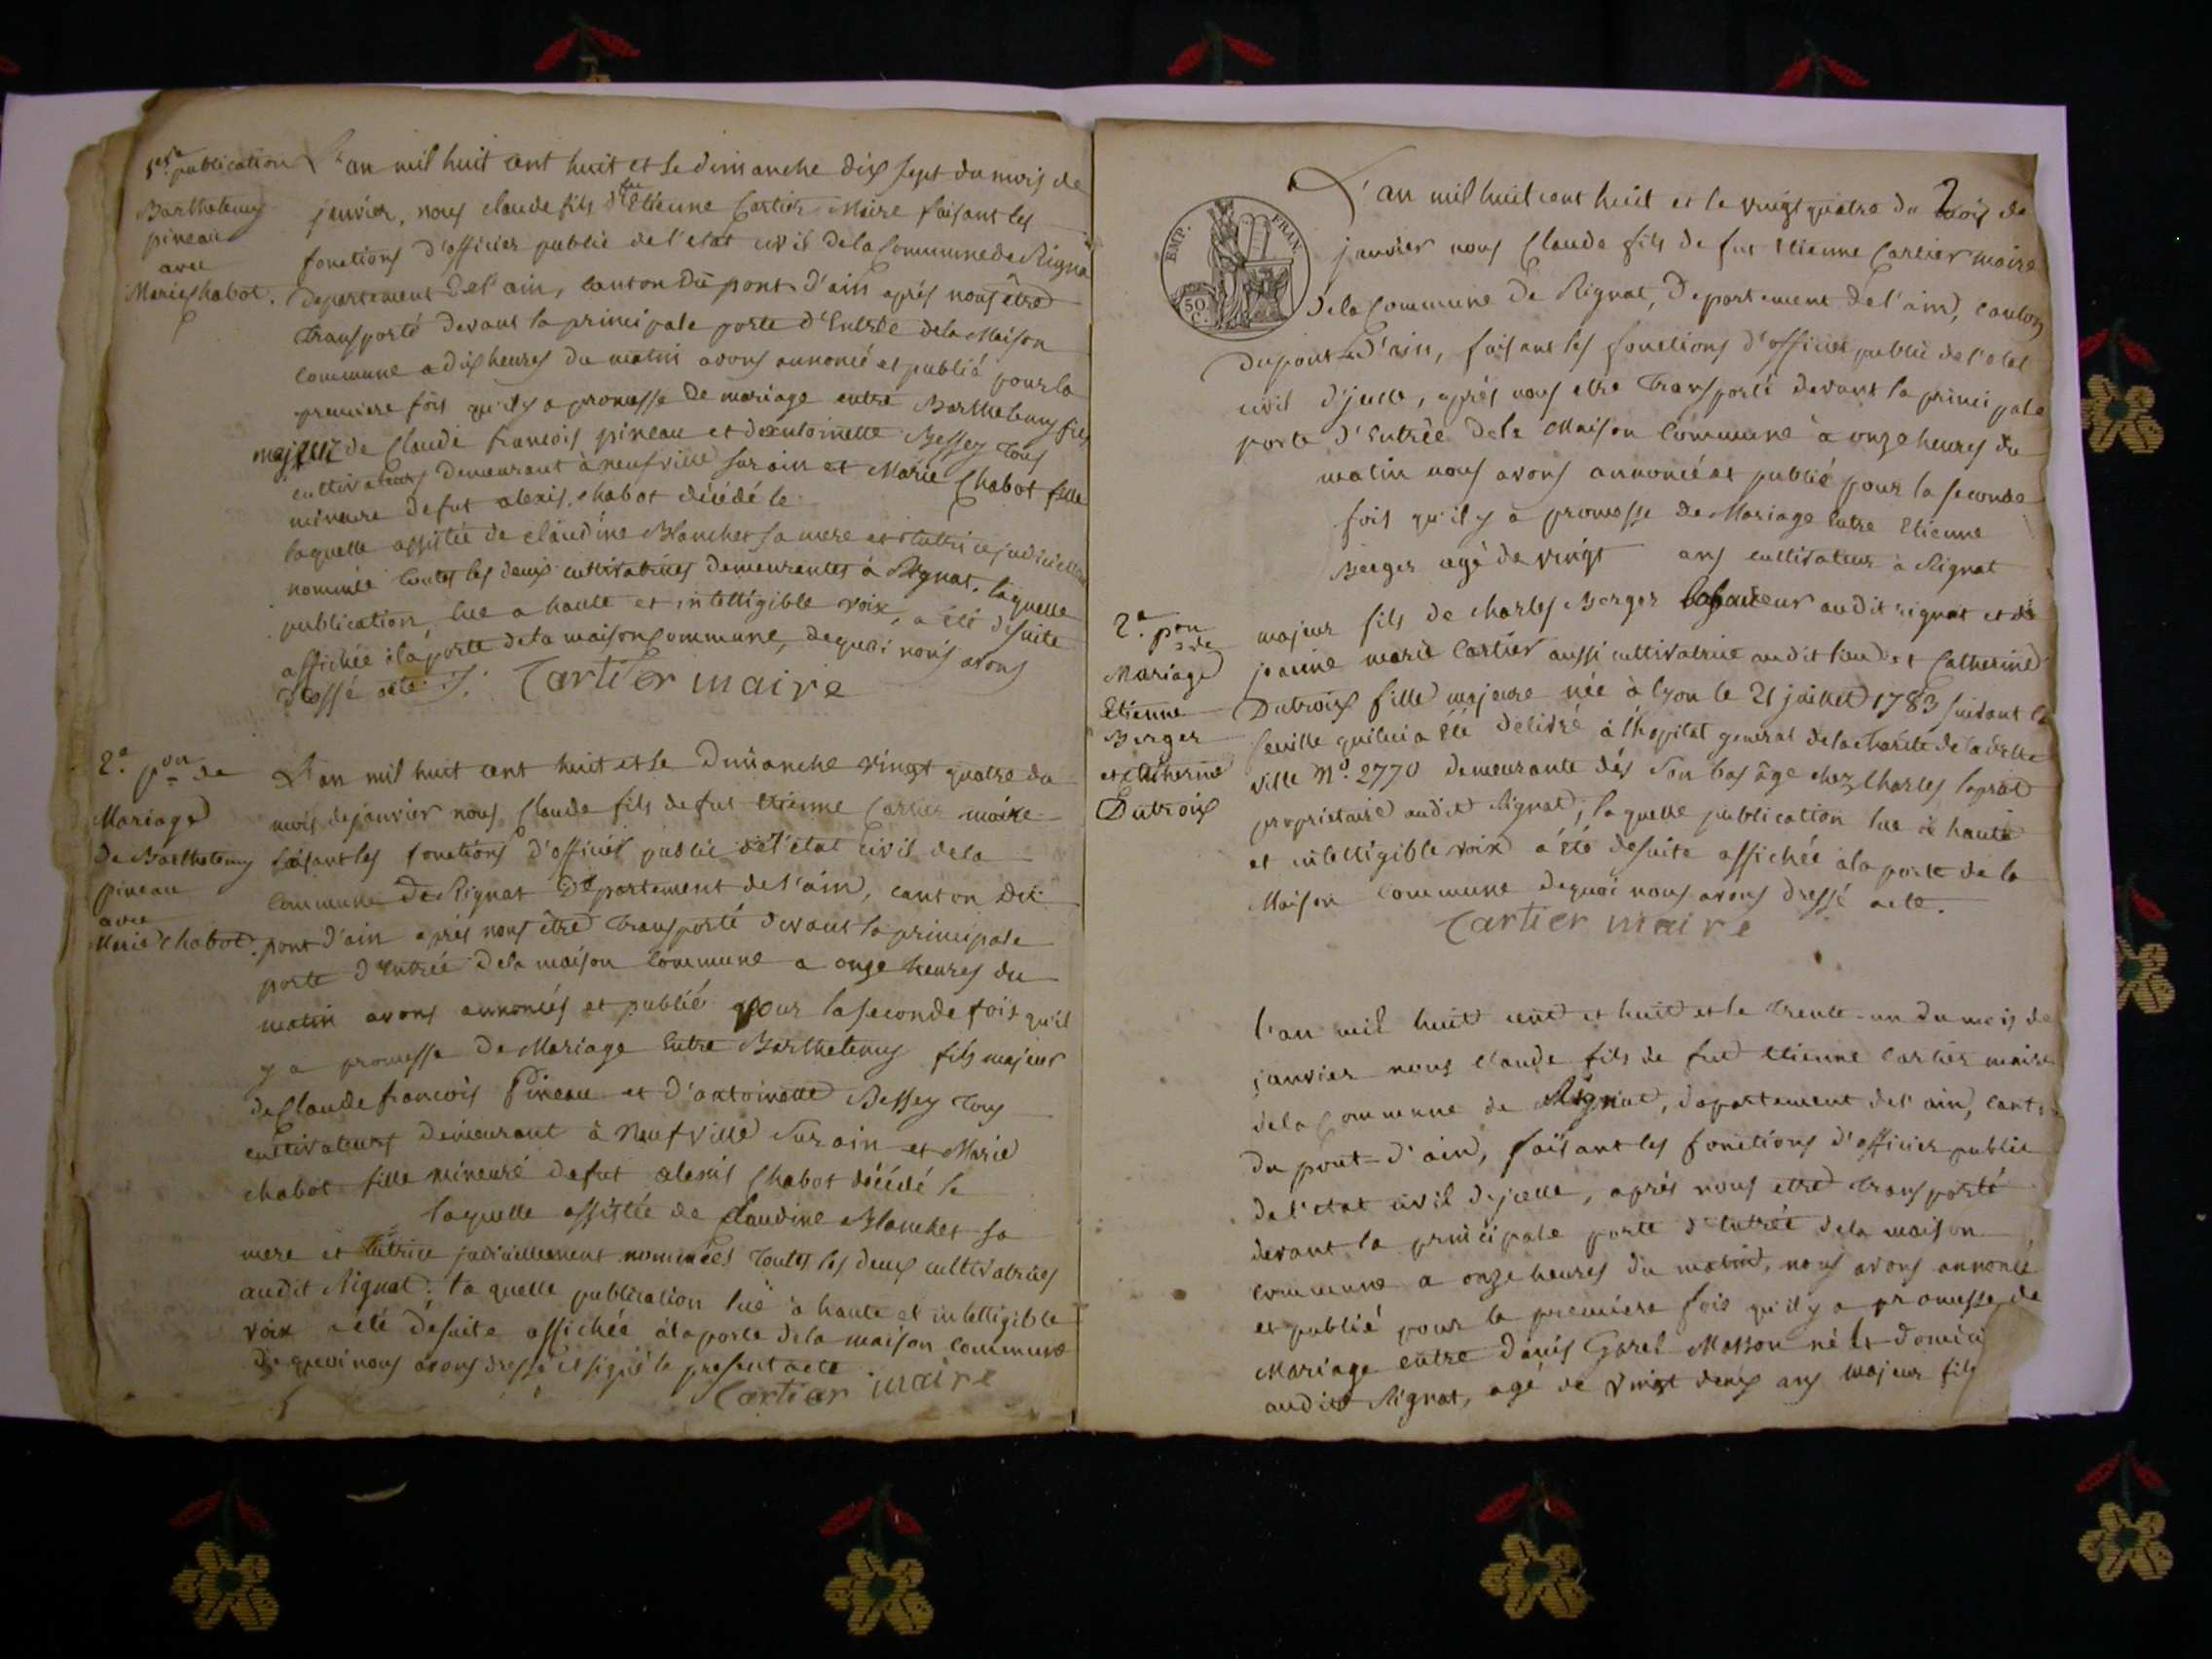 1ere publication
Barthelemy
pineau
avec
Marie Chabot.
L'an mil huit cent huit et le dimanche dix sept du mois de
janvier, nous claude fils de feu Etienne Cartier Maire faisant les
fonctions d'officier public de l'etat civil dela Commune de Rigna
Departement de l'ain, canton Du pont d'ain après nous être
Transporté devant la principale porte d'Entrée dela Maison
commune a dix heures du matin avons annoncé et publié pour la
premiere fois qu'il y a promesse de mariage entre Barthelemy fils
majeur de Claude francois pineau et d'antoinette Bessey tous
cultivateurs demeurant à neufville sur ain et Marie Chabot fille
mineure de fut alexis chabot décédé le
laquelle assistée de claudine Blanchet sa mere et tutrice judiciellem
nommée toutes les deux cultivatrices demeurantes à Rignat, laquelle
publication, lue a haute et intelligible voix, a été desuite
affichée à la porte dela maison commune, dequoi nous avons
dressé acte ./. Cartier maire
2e. pon de
Mariage
de Barthelemy
pineau
avec
Marie Chabot.
L'an mil huit cent huit et le Dimanche vingt quatre du
mois de janvier nous Claude fils de fut etienne Cartier maire
faisant les fonctions d'officier public de l'état civil dela
Commune de Rignat Département de l'ain, canton du
pont d'ain après nous être transporté devant la principale
porte d'entrée dela maison commune a onze heures du
matin avons annoncés et publié pour la seconde fois qu'il
y a promesse de Mariage Entre Barthelemy fils majeur
de Claude francois Pineau et d'antoinette Bessey tous
cultivateurs demeurant à Neufville sur ain et Marie
chabot fille mineure de fut alexis Chabot décédé le
laquelle assistée de Claudine Blanchet sa
mere et tutrice judiciellement nommées toutes les deux cultivatrices
audit Rignat; la quelle publication lue à haute et intelligible
voix a été desuite affichée à la porte dela maison commune
de quoi nous avons dressé et signé le present acte
Cartier maire
2
EMP. FRAN.
50 C.
L'an mil huit cent huit et le vingt quatre du mois de
janvier nous Claude fils de fut etienne Cartier maire
dela Commune de Rignat, Departement de l'ain, canton
du pont d'ain, faisant les fonctions d'officier public de l'etat
civil d'jcelle, après nous etre Transporté devant la principale
porte d'Entrée dela Maison Commune à onze heures du
matin nous avons annoncé et publié pour la seconde
fois qu'il y à promesse de Mariage Entre Etienne
Berger agé de vingt ans cultivateur à Rignat
2e. pon
de
Mariage
Etienne
Berger
et Catherine
Dutroix
majeur fils de charles Berger laboureur audit rignat et de
jeanne marie Cartier aussi cultivatrice audit lieu et Catherine
Dutroix fille majeure née à lyon le 21 juillet 1783 suivant la
feuille qui lui a été délivré à l'hopital general dela charité de ladette
ville No. 2770 demeurante dès son bas âge chez Charles
proprietaire audit Rignat; la quelle publication lue à haute
et intelligible voix à été desuite affichée à la porte de la
Maison Commune dequoi nous avons dressé acte.
Cartier maire
l'an mil huit cent et huit et le trente-un du mois de
janvier nous claude fils de fut etienne Cartier maire
dela Commune de Rignat, departement de l'ain, cant
du pont-d'ain, faisant les fonctions d'officier public
de l'etat civil d'jcelle, après nous etre transporté
devant la principale porte d'Entrée dela maison
commune a onze heures du matin, nous avons annoncé
et publié pour la premiere fois qu'il y a promesse de
Mariage entre Denis Garel Masson né et domici
audit Rignat, agé de vingt deux ans Majeur fils